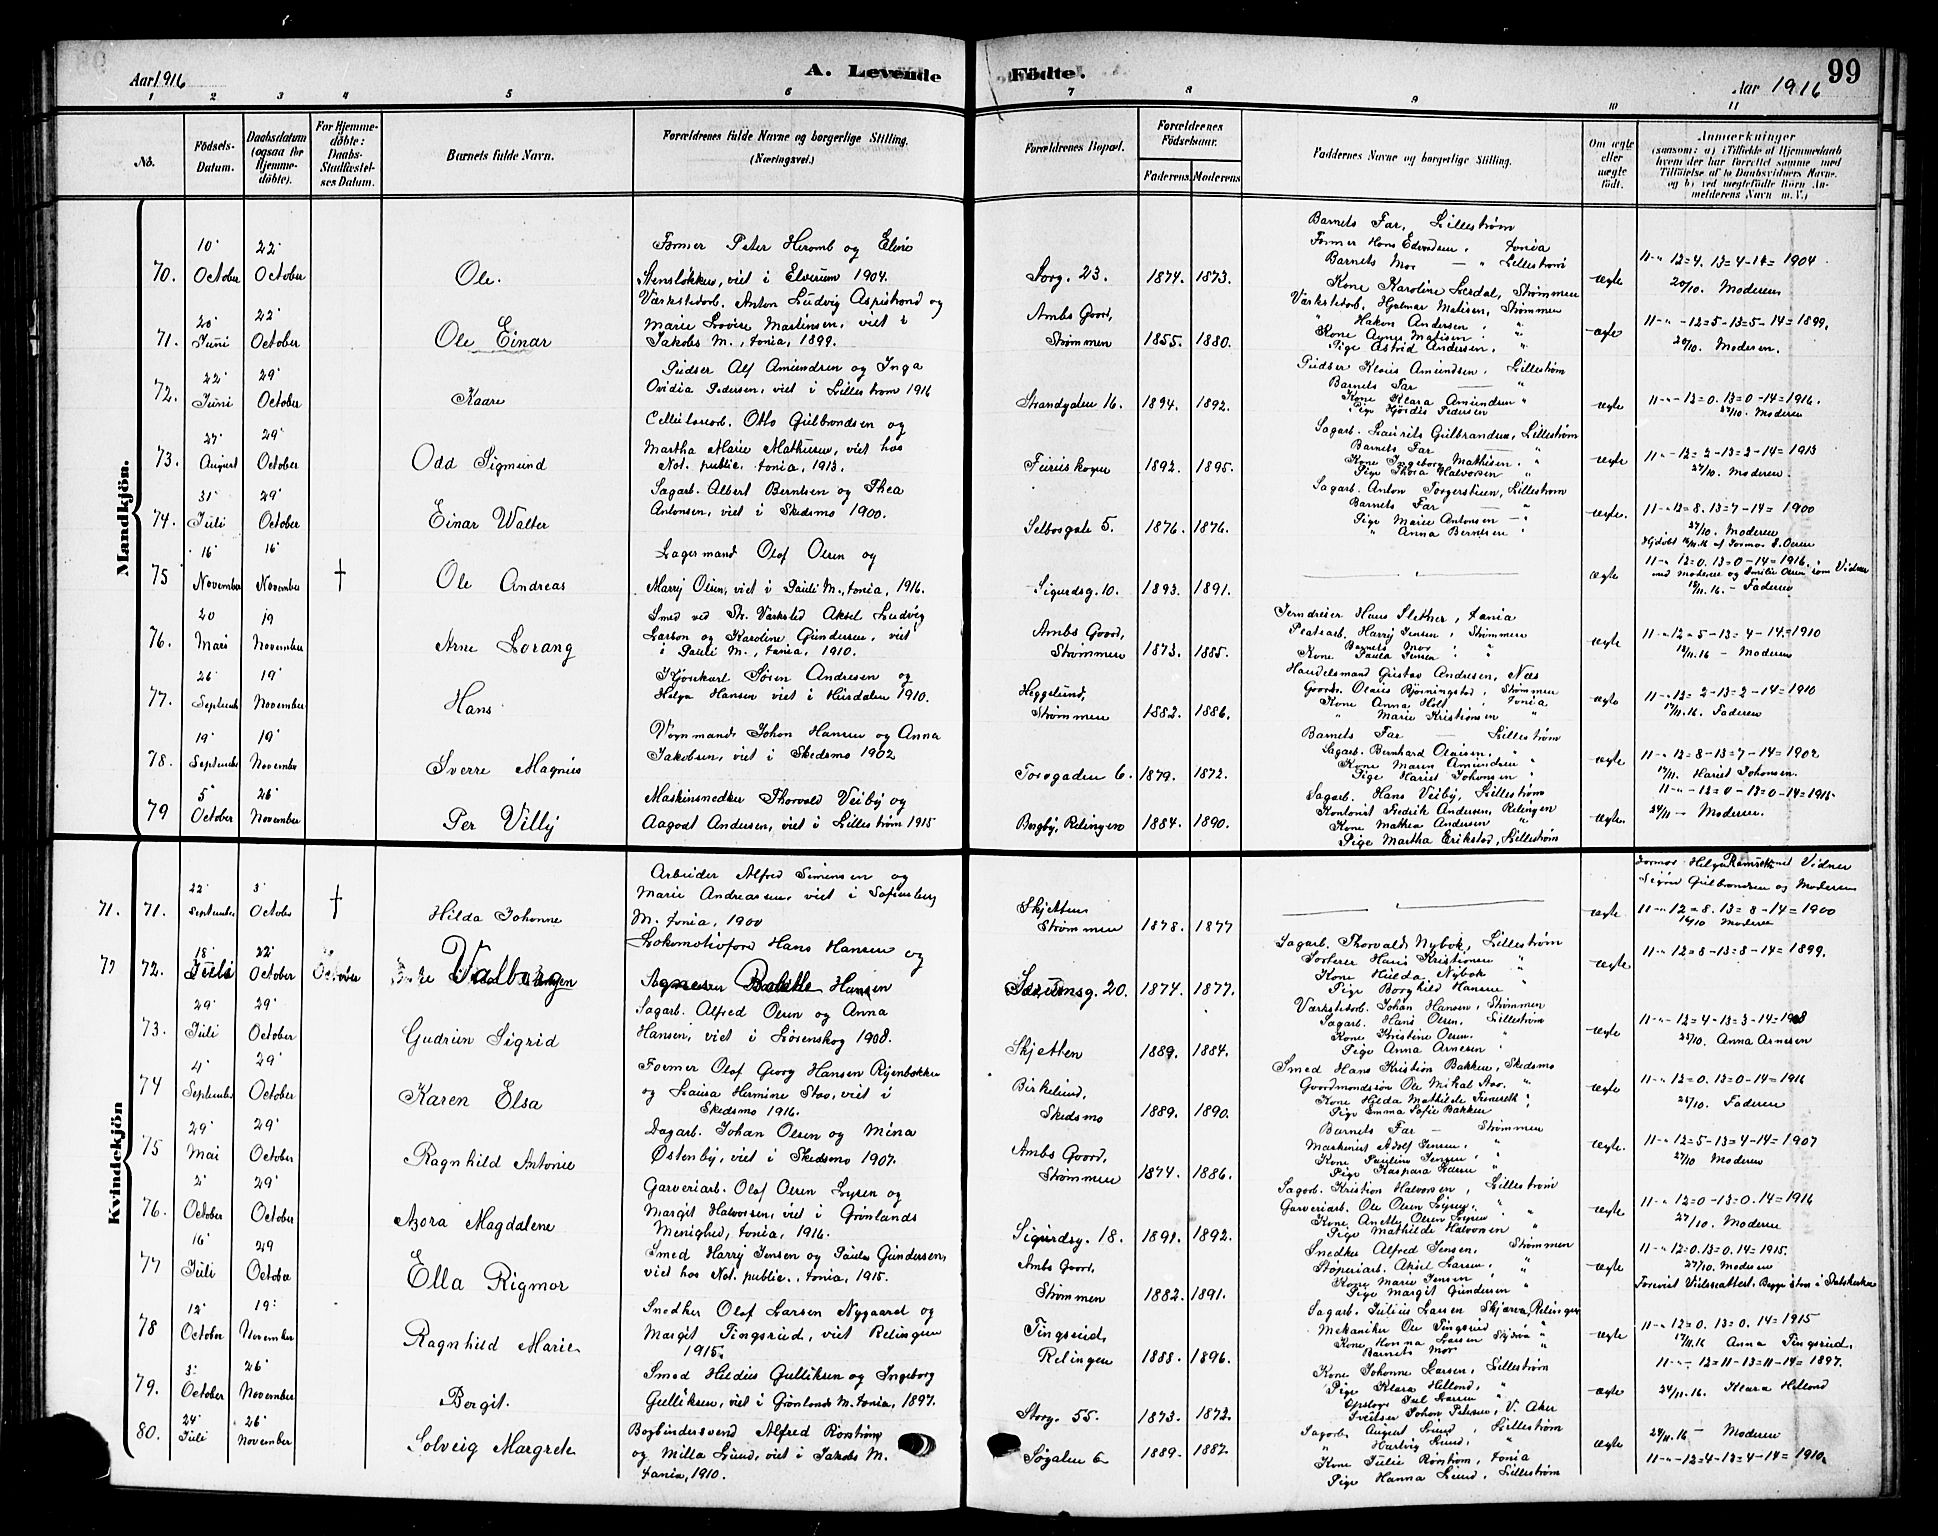 Aar 1916
A. Levende
Fødte.
Aar 1916
99
1 2 3 4 5 6 7 8 9 10 11
No.
Fødsels-
Datum.
Daabsdatum
(ogsaa for
Hjemme-
døbte).
For Hjemme-
døbte:
Daabs-
Stadfæstel-
ses Datum.
Barnets fulde Navn.
Forældrenes fulde Navne og borgerlige Stilling.
(Næringsvei.)
Forældrenes Bopæl.
Forældrenes
Fødselsaar.
Faderens. Moderens
Faddernes Navne og borgerlige Stilling.
Om ægte
eller
uægte
født.
Anmærkninger
(saasom: a) i Tilfælde af Hjemmedaab
hvem der har forrettet samme med
Tilføielse af to Daabsvidners Navne.
og b) ved uægtefødte Børn An-
melderens Navn m. V.)
Mandkjön.
70.
10'
October
22'
October
Ole.
Former Peter Heromb og Eline
Stensløkken, viet i Elverum 1904.
Storg. 23.
1874. 1873.
Barnets Far, Lillestrøm
Barnets Mor — " Lillestrøm
Kone Karoline Lerdal, Strømmen
ægte
11-" 12=4. 13=4-14= 1904
20/10. Moderen
71.
20'
Juni
22'
October
Ole Einar
Værkstedarb. Anton Ludvig Aspestrand og
Marie Lovise Martinsen, viet i
Jakobs M., tania, 1899.
Ambs Goord,
Strømmen
1855. 1880.
Værkstedarb. Hjalmar Matisen, Strømmen
" Hakon Andersen, "
Kone Agnes Matisen, "
Pige Astrid Andersen, "
ægte
11-"-12=5-13=5-14=1899.
20/10. Moderen.
72.
22'
Juni
29'
October
Kaare
Pudser Alf Amundsen og Inga
Ovidia Pedersen, viet i Lillestrøm 1916
Strandgaten 16.
1894. 1892.
Pudser Klaus Amundsen, Lillestrøm
Barnets Far — "
Kone Klara Amundsen "
Pige Hjørdis Pedersen
ægte
11-"-12=0. 13=0-14=1916.
27/10. Moderen
73.
27'
August
29'
October
Odd Sigmund
Cellulosearb. Otto Gulbrandsen og
Martha Marie Mathisen, viet hos
Not. public. tania, 1913.
1892. 1895.
Sagarb. Laurits Gulbrandsen, Lillestrøm
Barnets Far — "
Kone Ingeborg Mathisen. "
Pige Thora Halvorsen "
ægte
11-"-12=2-13=2-14=1913
27/10. Moderen.
74.
31'
Juli
29'
October
Einar Walter
Sagarb. Albert Berntsen og Thea
Antonsen, viet i Skedsmo 1900.
Selbosgate 5.
1876. 1876.
Sagarb. Anton Torgerstuen, Lillestrøm
Barnets Far — "
Pige Marie Antonsen — "
" Anna Berntsen "
ægte.
11-"-12=8. 13=7-14=1900
27/10. Moderen
75
16'
November
16'
November
†
Ole Andreas
Lagermand Olof Olsen og
Marry Olsen, viet i Pauli M., tania, 1916.
Sigurdsg. 10.
1893. 1891.
ægte
11-" 12=0. 13=0-14=1916.
med Moderen og Emilie Olsen som Vidner
18/11.16 - Faderen
76.
20
Mars
19
November
Arne Lorang
Smed ved St. Værksted Aksel Ludvig
Larson og Karoline Gundersen, viet
i Pauli M., tania, 1910.
Ambs Goord,
Strømmen
1873. 1885.
Jerndreier Hans Sletner, tania
Pladsarb. Harry Jensen, Strømmen
Barnets Mor, "
Kone Paula Jensen, "
ægte
11-" 12=5-13=4-14.=1910
18/11.16 - Moderen
77.
26'
Septemb
19'
November
Hans
Kjørekarl Søren Andresen og
Helga Hansen viet i Hurdalen 1910.
Heggelund,
Strømmen
1882. 1886.
Handelsmand Gustav Andresen, Næs
Goords. Olaus Bjørningstad, Strømmen
Kone Anna Holt, tania
" Marie Kristiansen "
ægte
11-"-12=2-13=2-14=1910
17/11.16. Faderen
78.
19'
Septemb
19'
November
Sverre Magnus
Vognmand Johan Hansen og Anna
Jakobsen, viet i Skedsmo 1902
Torvgaden 6.
1879. 1872.
Barnets Far — Lillestrøm
Sagarb. Bernhard Olaisen, "
Kone Maren Amundsen "
Pige Hariet Johansen "
ægte
11-" 12=8-13=7-14=1902
17/11. Hariet Johansen.
79
5'
October
26'
November
Per Villy
Maskinsnedker Thorvald Veiby og
Aagodt Andersen, viet i Lillestrøm 1915
Borgby, Relingen
1884. 1890.
Sagarb. Hans Veiby, Lillestrøm
Kontorist Fredrik Andersen, Relingen
Kone Mathea Andersen "
Pige Martha Erikstad, Lillestrøm
ægte.
11-"-12=0-13=0-14=1915
24/11 - Moderen.
Kvindekjön
71. 71.
22'
September
3'
October
†
Hilda Johanne
Arbeider Alfred Simensen og
Marie Andreassen, viet i Sofienberg
M. tania, 1900
Skjetten
Strømmen
1878. 1877
ægte
Sigurd Gulbrandsen og Moderen
11-" 12=8. 13=8-14=1900
16/10 Moderen
72.
18'
Juli
22'
October
October
Valborg
Lokomotivford Hans Hansen og
Agnes Bolette Hansen
Sørumsg. 20.
1874. 1877.
Sagarb. Thorvald Nybak, Lillestrøm
Sorterer Hans Kristiansen "
Kone Hulda Nybak "
Pige Borghild Hansen "
ægte
11-" 12=8-13=8-14=1899.
73.
29'
Juli
29'
October
Gudrun Sigrid
Sagarb. Alfred Olsen og Anna
Hansen, viet i Lørenskog 1908.
Skjetten
1889. 1884.
Værkstedarb. Johan Hansen, Strømmen
Sagarb. Hans Olsen, Lillestrøm
Kone Kristine Olsen. "
Pige Anna Arnesen "
ægte
11-" 12=4-13=3-14=1908
Anna Arnesen
74
4'
September
29'
October
Karen Elsa
Former Olaf Georg Hansen Ryenbakken
og Laura Hermine Stav, viet i
Skedsmo 1916.
Birkelund,
Skedsmo
1889. 1890.
Smed Hans Kristian Bakken, Skedsmo
Goordmandssøn Ole Mikal Aas. "
Pige Emma Sofie Bakken "
ægte
11-" 12=0. 13=0-14=1916
Faderen
75
29'
Mai
29'
October
Ragnhild Antonie
Dagarb. Johan Olsen og Mina
Østenby, viet i Skedsmo 1907.
Ambs Goord,
Strømmen
1874. 1886.
Barnets Far — Strømmen
Maskinist Adolf Jensen, "
Kone Pauline Jensen, "
Pige Kaspara Larsen "
ægte.
11-" 12=5-13=4-14=1907
27/10 Moderen
76.
2'
October
29'
October
Azora Magdalene
Garveriarb. Olaf Olsen Lysen og
Margit Halvorsen, viet i Grønlands
Menighed, tania, 1916.
Sigurdsg. 18.
1891. 1892.
Sagarb. Kristian Halvorsen, Lillestrøm
Garveriarb. Ole Olsen Lysen, "
Kone Anette Olsen Lysen "
Pige Mathilde Halvorsen "
ægte
11-" 12=0-13=0. 14=1916
27/10. Moderen
77
16'
Juli
29
October
Ella Rigmor
Smed Harry Jensen og Paula Gundersen,
viet hos Not. public., tania, 1915.
Ambs Goord,
Strømmen
1882. 1891.
Snedker Alfred Jensen, Strømmen
Støperiarb. Aksel Larsen, "
Kone Marie Jensen, "
Pige Margit Gundersen "
ægte
11-" 12=0. 13=0. 14=1915.
27/10. Moderen
78
12'
October
19'
November
Ragnhild Marie
Snedker Olaf Larsen Nygaard og
Margit Tingsrud, viet Relingen
1915.
Tingsrud,
Relingen
1888. 1896.
Sagarb. Julius Larsen Skjærva, Relingen
Mekaniker Ole Tingsrud "
Barnets Mor "
ægte
11-" 12=0. 13=0. 14=1915
17/11.16 Anna Tingsrud.
79.
3'
October
26'
November
Bergit.
Smed Hildus Gulliksen og Ingeborg
Gulliksen, viet i Grønlands M. tania, 1897.
Storg. 55.
1873. 1872.
Kone Johanne Larsen, Lillestrøm
Pige Klara Helland, "
ægte
11-"-12=11-13=11-14=1897.
24/11.16. Klara Helland
80.
24'
Juli
26'
November
Solveig Margrete
Bogbindersvend Alfred Rørstrøm
og Milla Lund, viet i Jakobs M.
tania, 1910.
Søgaten 6
1889. 1882.
Sagarb. August Lund, Lillestrøm
" Hartvig Lund, "
Kone Julie Rørstrøm, tania
Pige Hanna Lund, Lillestrøm
ægte
24/11.16 - Moderen
11-"-12=4-13=4-14=1910.